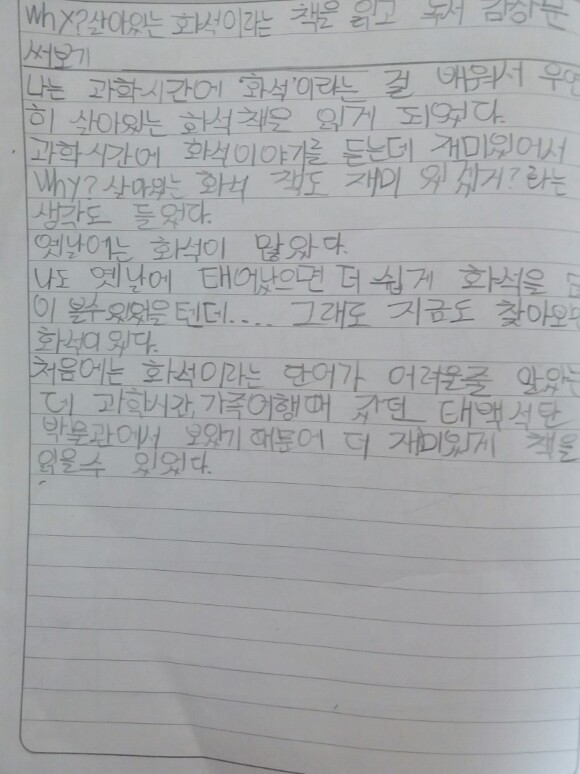 Why? 살아있는 화석이라는 책을 읽고 독서 감상문
써보기
나는 과학시간에 '화석'이라는 걸 배워서 우연
히 살아있는 화석 책을 읽게 되었다.
과학시간에 화석이야기를 듣는데 재미있어서
Why? 살아있는 화석 책도 재미 있겠지? 라는
생각도 들었다.
옛날에는 화석이 많았다.
나도 옛날에 태어났으면 더 쉽게 화석을
이 볼수있었을텐데.... 그래도 지금도 찾아보면
화석이 있다.
처음에는 화석이라는 단어가 어려울줄 알았는
데 과학시간, 가족여행때 갔던 태백석탄
박물관에서 보았기 때문에 더 재미있게 책을
읽을수 있었다.